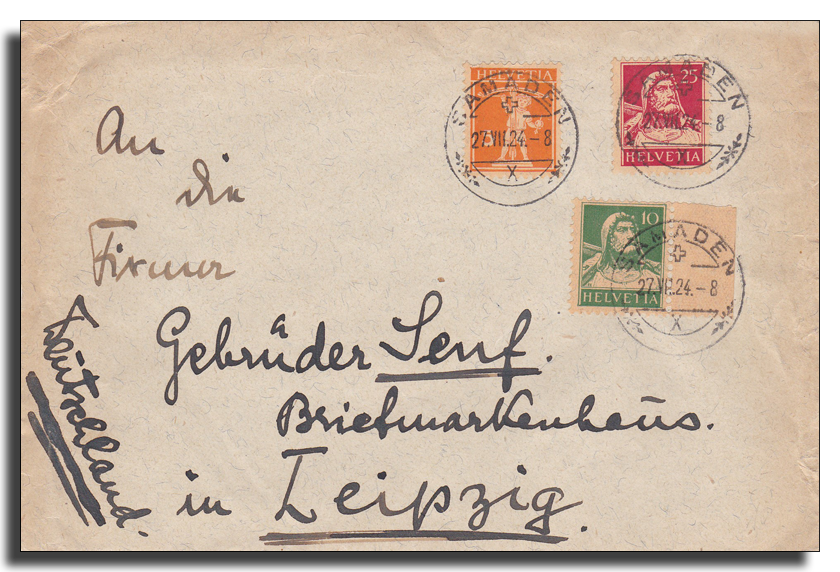 HELVETIA
SAMADEN
27.VII.24.-8
X
25
SAMADEN
27.VII.24.-8
HELVETIA
X
10
SAMADEN
27.VII.24.-8
HELVETIA
X
An
die
Firma
Gebrüder Senf.
Briefmarkenhaus.
in Leipzig.
Deutschland.